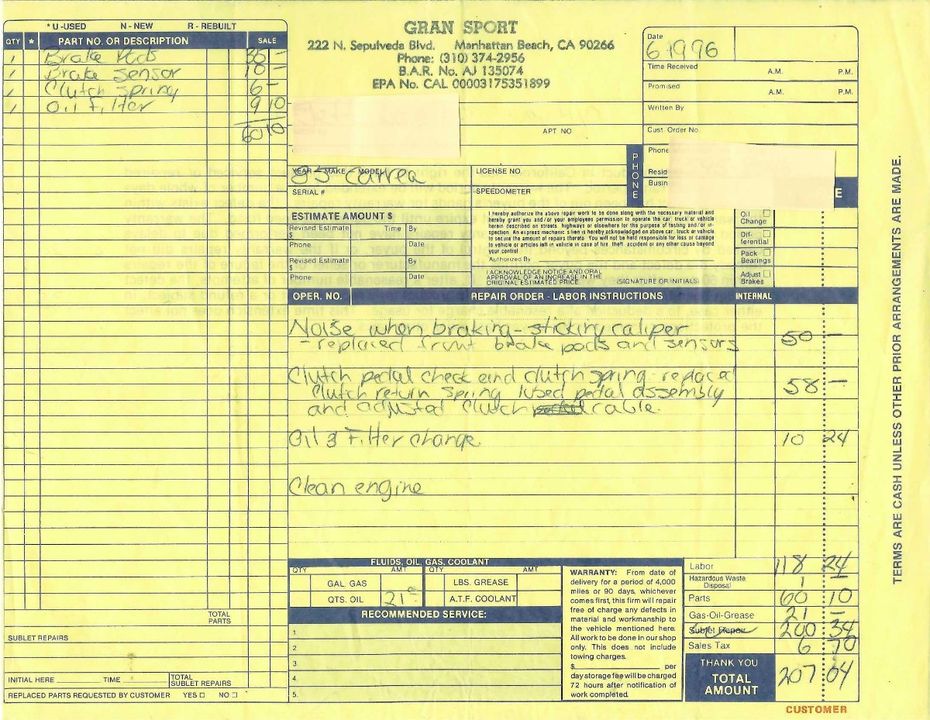 * U-USED N - NEW R - REBUILT
QTY * PART NO. OR DESCRIPTION SALE
1 Brake Pads 35 -
1 Brake Sensor 10 -
1 Clutch Spring 6 -
1 Oil Filter 9 10
60 10
TOTAL PARTS
SUBLET REPAIRS
INITIAL HERE TIME TOTAL SUBLET REPAIRS
REPLACED PARTS REQUESTED BY CUSTOMER YES NO
GRAN SPORT
222 N. Sepulveda Blvd. Manhattan Beach, CA 90266
Phone: (310) 374-2956
B.A.R. No. AJ 135074
EPA No. CAL 00003175351899
Date
6-1996
Time Received A.M. P.M.
Promised A.M. P.M.
Written By
APT NO Cust Order No
PHONE
Phone
Resid
Busin
YEAR - MAKE - MODEL LICENSE NO.
85 Carrea
SERIAL # SPEEDOMETER
ESTIMATE AMOUNT $
Revised Estimate Time By
$
Phone Date
Revised Estimate By
$
Phone Date
I hereby authorize the above repair work to be done along with the necessary material and
hereby grant you and/or your employees permission to operate the car, truck or vehicle
herein described on streets, highways or elsewhere for the purpose of testing and/or in-
spection. An express mechanic's lien is hereby acknowledged on above car, truck or vehicle
to secure the amount of repairs thereto. You will not be held responsible for loss or damage
to vehicle or articles left in vehicle in case of fire, theft, accident or any other cause beyond
your control.
Authorized By
I ACKNOWLEDGE NOTICE AND ORAL
APPROVAL OF AN INCREASE IN THE
ORIGINAL ESTIMATED PRICE. (SIGNATURE OR INITIALS)
E
Oil Change
Dif- ferential
Pack Bearings
Adjust Brakes
OPER. NO. REPAIR ORDER - LABOR INSTRUCTIONS INTERNAL
Noise when braking - sticking caliper 50 -
- replaced front brake pads and sensors
Clutch pedal check and clutch spring - replaced 58 -
Clutch return spring lubed pedal assembly
and adjusted clutch cable.
Oil & Filter change 10 24
Clean engine
FLUIDS, OIL, GAS, COOLANT
QTY AMT QTY AMT
GAL. GAS LBS. GREASE
QTS. OIL 21 A.T.F. COOLANT
RECOMMENDED SERVICE:
1
2
3
4
5.
WARRANTY: From date of
delivery for a period of 4,000
miles or 90 days, whichever
comes first, this firm will repair
free of charge any defects in
material and workmanship to
the vehicle mentioned here.
All work to be done in our shop
only. This does not include
towing charges.
$ per
day storage fee will be charged
72 hours after notification of
work completed.
Labor 118 24
Hazardous Waste Disposal 1 -
Parts 60 10
Gas-Oil-Grease 21 -
Sublet Repair 200 34
Sales Tax 6 70
THANK YOU
TOTAL AMOUNT 207 04
CUSTOMER
TERMS ARE CASH UNLESS OTHER PRIOR ARRANGEMENTS ARE MADE.